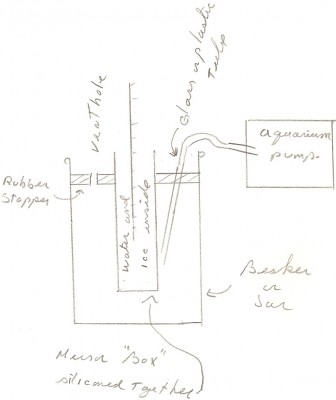 Vent hole
Glass or plastic
Tube
aquarium
pump
Rubber
Stopper
water and
ice inside
Beaker
or
Jar
Mirror "Box"
siliconed Together